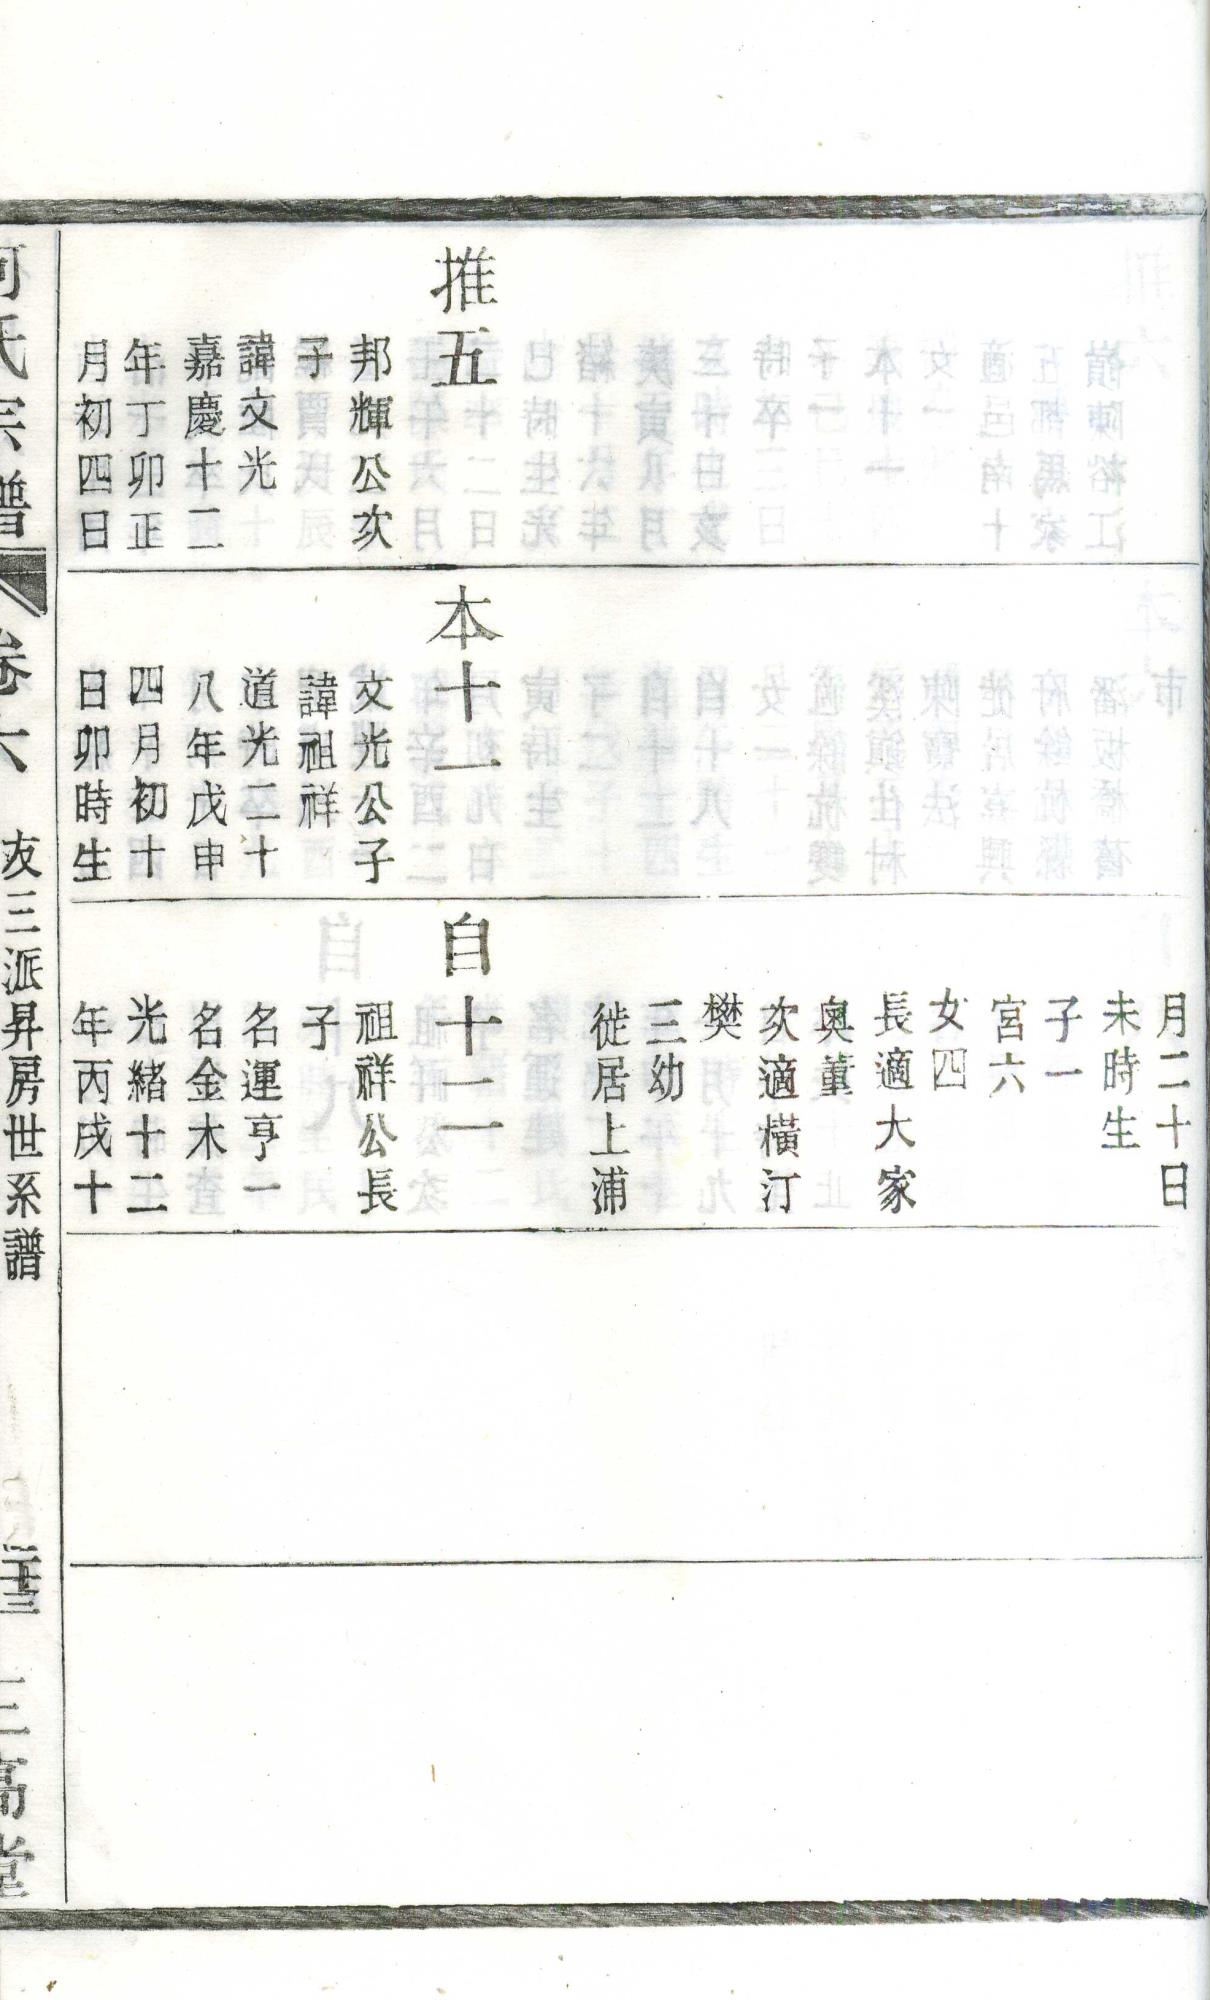 推五
邦輝公次
子
諱文光
嘉慶十二
年丁卯正
月初四日
本十一
文光公子
諱祖祥
道光二十
八年戊申
四月初十
日卯時生
月二十日
未時生
子一
宮六
女四
長適大家
奧董
次適橫汀
樊
三幼
徙居上浦
自十一
祖祥公長
子
名運亨一
名金木
光緒十二
年丙戌十
何氏宗譜
卷六
友三派昇房世系譜
三高堂